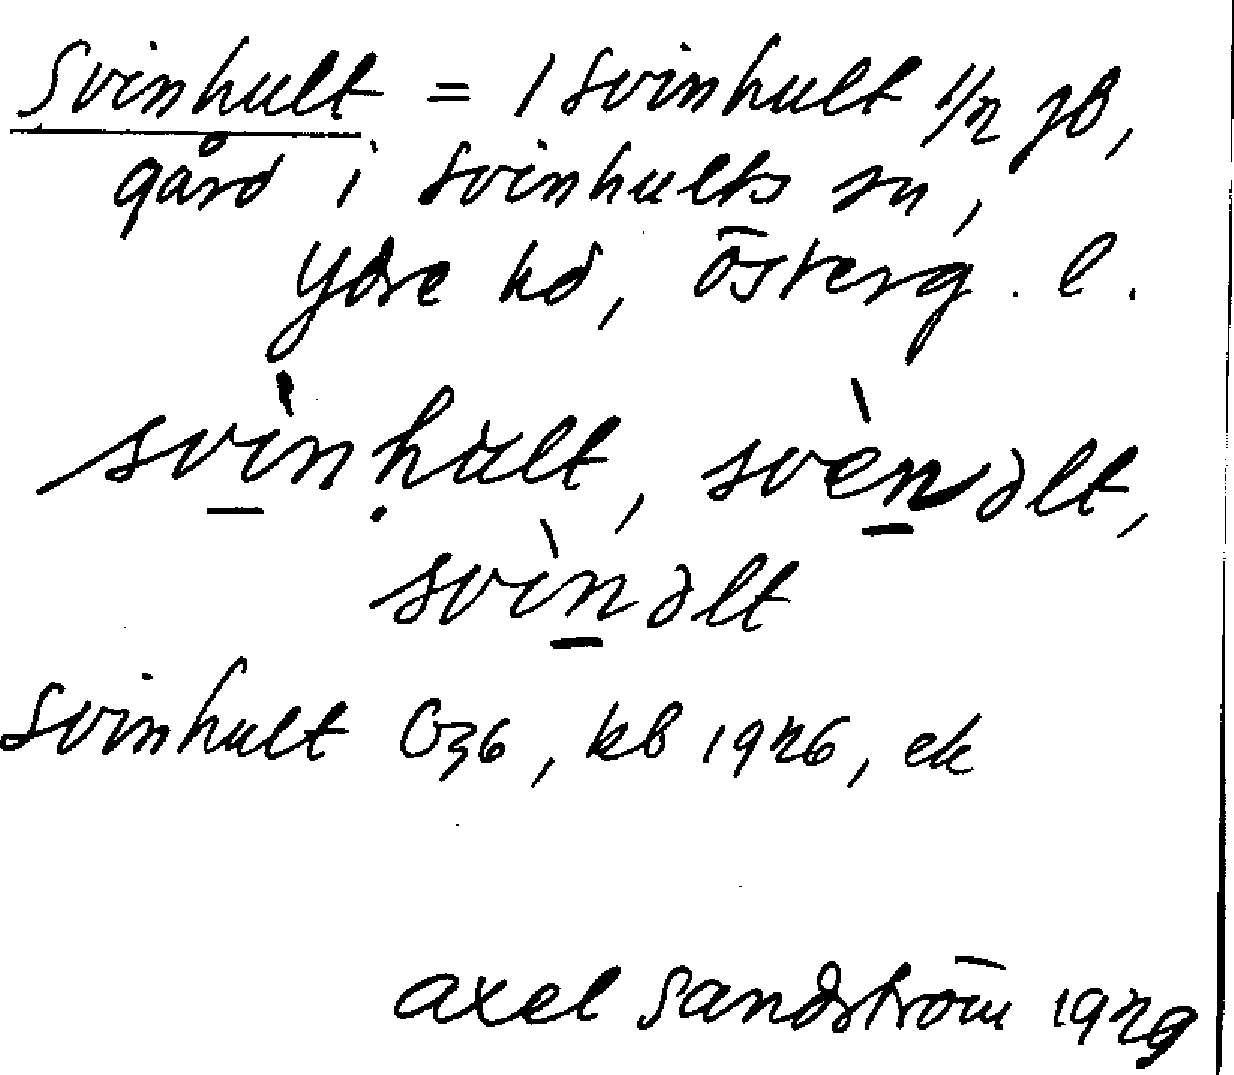 Svinhult = 1 Svinhult 1/2 jb,
gård i Svinhults sn,
Ydre hd, Österg. l.
svìnhùlt, svènəlt,
svìnəlt
Svinhult G36, kb 1926, ek
Axel Sandström 1929